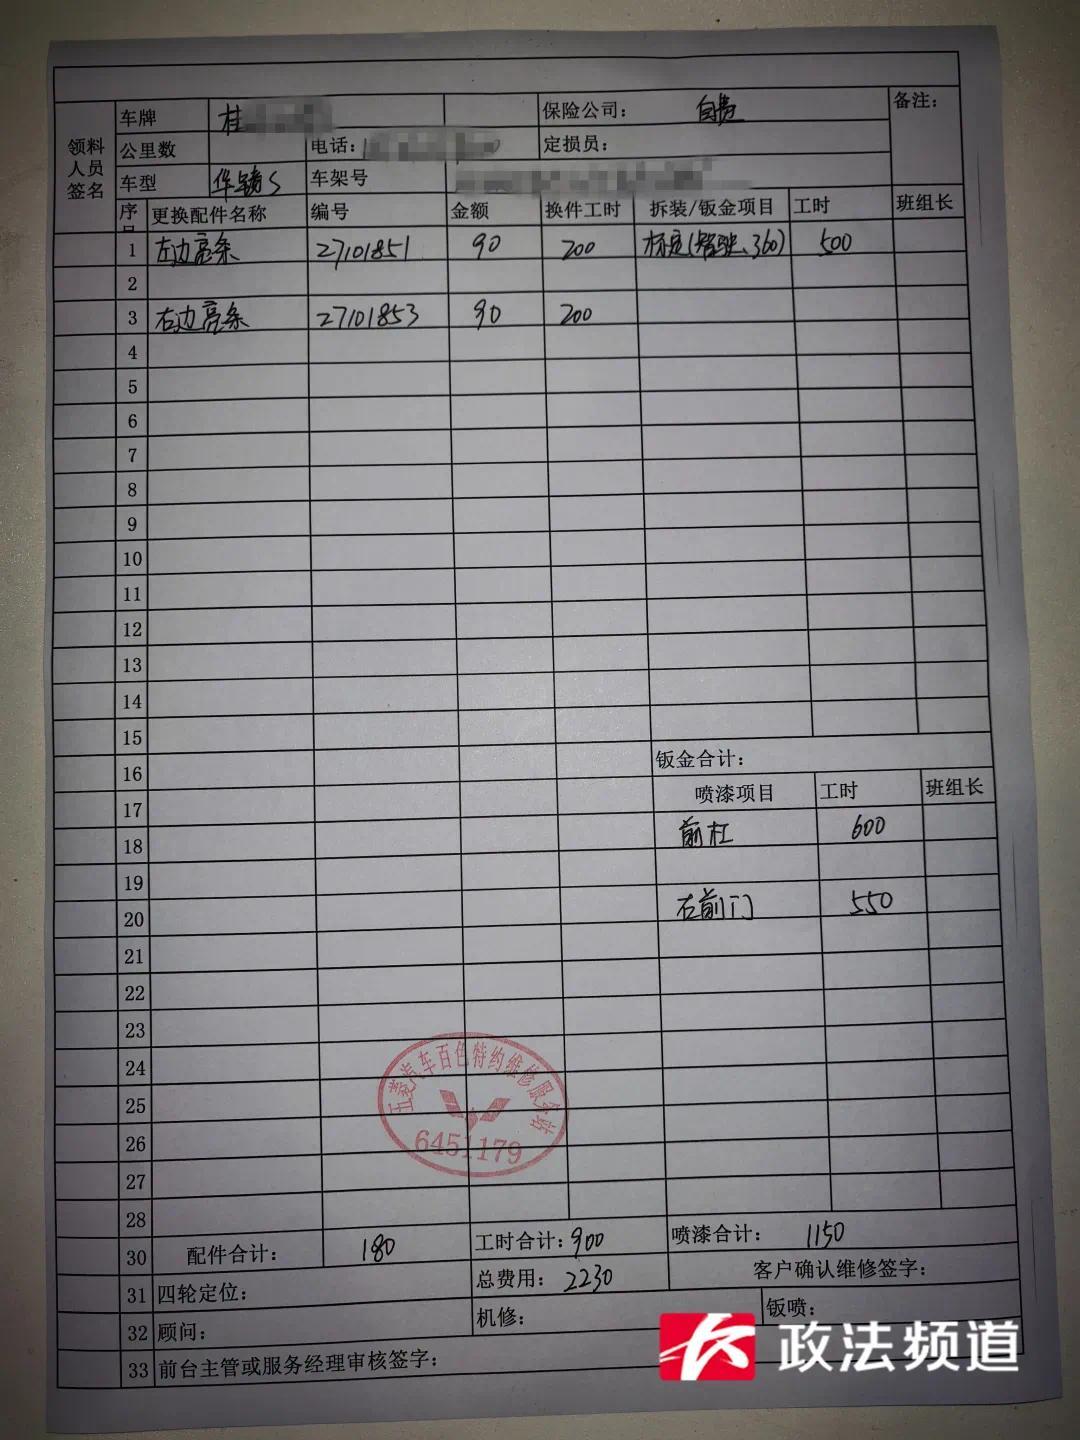 领料人员签名
车牌 桂 保险公司： 自费 备注：
公里数 电话： 定损员：
车型 华镜S 车架号
序号 更换配件名称 编号 金额 换件工时 拆装/钣金项目 工时 班组长
1 左边亮条 27101851 90 200 标定(智驶、360) 500
2
3 右边亮条 27101853 90 200
4
5
6
7
8
9
10
11
12
13
14
15
16 钣金合计：
17 喷漆项目 工时 班组长
18 前杠 600
19
20 右前门 550
21
22
23
24
25
26
27
28
五菱汽车百色特约维修服务站
6451179
30 配件合计： 180 工时合计：900 喷漆合计： 1150
31 四轮定位： 总费用： 2230 客户确认维修签字：
32 顾问： 机修： 钣喷：
33 前台主管或服务经理审核签字：
政法频道